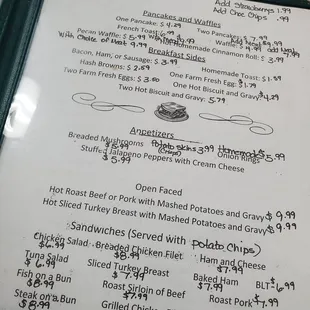 Add Strawberrys 1.99
Add Choc Chips .99
Pancakes and Waffles
One Pancake: $4.29
Two Pancakes: $7.99
French Toast: 6.99
Pecan Waffle: $5.99
Waffle: $4.99
With Choice of Meat 9.99
Homemade Cinnamon Roll: $3.99
7.99
Breakfast Sides
Bacon, Ham, or Sausage: $3.99
Homemade Toast: $1.89
Hash Browns: $2.89
One Farm Fresh Egg: $1.79
Two Farm Fresh Eggs: $3.00
One Hot Biscuit and Gravy: $4.29
Two Hot Biscuit and Gravy: 5.79
Appetizers
Breaded Mushrooms $5.99
Potato skins 3.99
(Chips)
Homemade Onion Rings $5.99
Stuffed Jalapeno Peppers with Cream Cheese
$5.99
Open Faced
Hot Roast Beef or Pork with Mashed Potatoes and Gravy $9.99
Hot Sliced Turkey Breast with Mashed Potatoes and Gravy $9.99
Sandwiches (Served with potato Chips)
Chicken Salad $6.99
Breaded Chicken Filet $8.99
Ham and Cheese $7.99
Tuna Salad $6.99
Sliced Turkey Breast $7.99
Baked Ham $7.99
BLT $6.99
Fish on a Bun $8.99
Roast Sirloin of Beef $7.99
Roast Pork $7.99
Steak on a Bun $8.99
Grilled